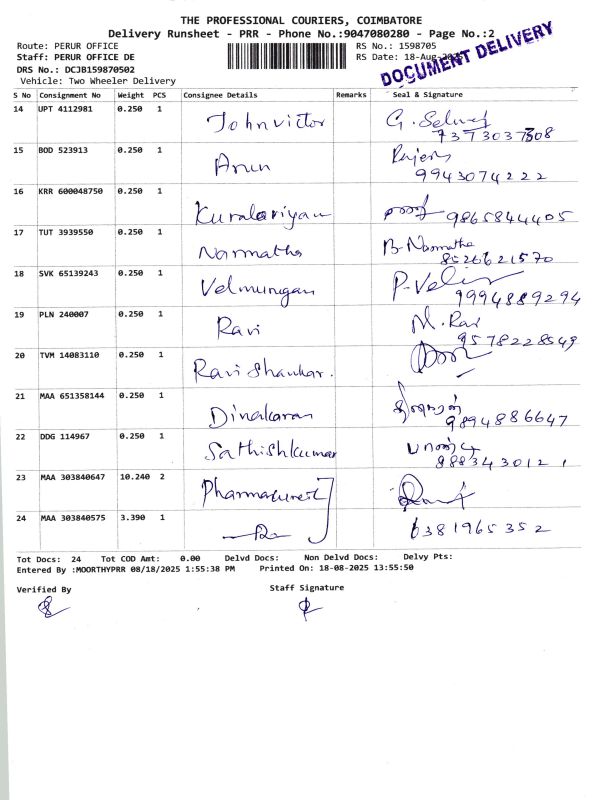 THE PROFESSIONAL COURIERS, COIMBATORE
Delivery Runsheet - PRR - Phone No.:9047080280 - Page No.:2
Route: PERUR OFFICE
RS No.: 1598705
Staff: PERUR OFFICE DE
RS Date: 18-Aug-2025
DRS No.: DCJB159870502
DOCUMENT DELIVERY
Vehicle: Two Wheeler Delivery
S No Consignment No Weight PCS Consignee Details Remarks Seal & Signature
14 UPT 4112981 0.250 1 Johnvictor G. Selvaj
7373037308
15 BOD 523913 0.250 1 Arun
9943074222
16 KRR 600048750 0.250 1 Kuralariyan 9865844405
17 TUT 3939550 0.250 1 Narmatha B. Narmatha
8526621570
18 SVK 65139243 0.250 1 Velmurugan P. Velu
9994889294
19 PLN 240007 0.250 1 Ravi M. Ravi
9578228549
20 TVM 14083110 0.250 1 Ravi Shankar.
21 MAA 651358144 0.250 1 Dinakaran தினகரன்
9894886647
22 DDG 114967 0.250 1 Sathishkumar பாண்டி
9883430121
23 MAA 303840647 10.240 2
24 MAA 303840575 3.390 1 6381965352
Tot Docs: 24 Tot COD Amt: 0.00 Delvd Docs: Non Delvd Docs: Delvy Pts:
Entered By :MOORTHYPRR 08/18/2025 1:55:38 PM Printed On: 18-08-2025 13:55:50
Verified By
Staff Signature